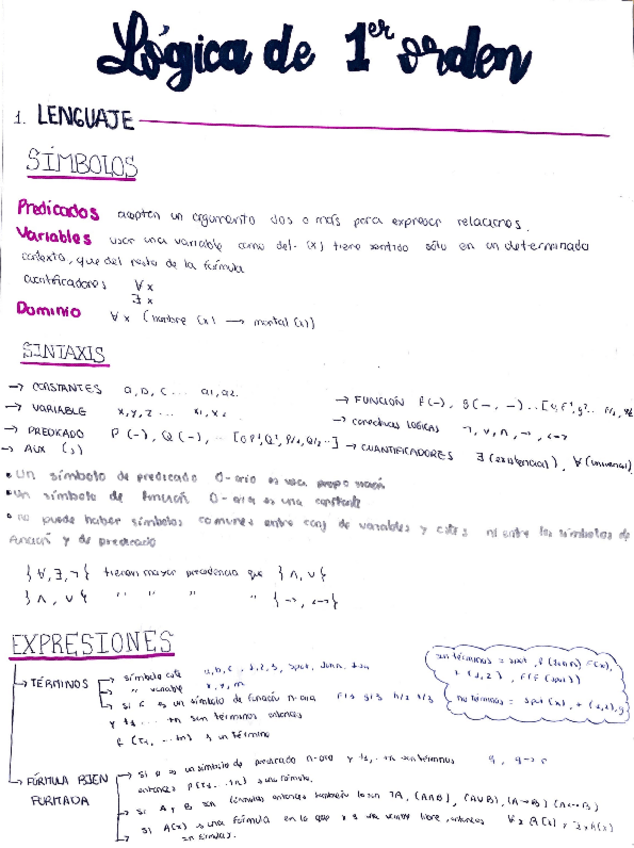 Lógica de 1er orden
1. LENGUAJE
SÍMBOLOS
Predicados aceptan un argumento dos o más para expresar relaciones.
Variables usar una variable como del. (x) tiene sentido sólo en un determinado
contexto, que del resto de la fórmula
cuantificadores ∀x
∃x
Dominio ∀x (hombre (x) → mortal (x))
SINTAXIS
→ CONSTANTES a, b, c ... a1, a2.
→ VARIABLE x, y, z ... x1, x2
→ PREDICADO P (-), Q (-), ..
→ AUX ( , )
→ FUNCIÓN f(-), g(-, -) ..
→ conectivas LÓGICAS ¬, ∨, ∧, →, ↔
→ CUANTIFICADORES ∃ (existencial), ∀ (universal)
• Un símbolo de predicado 0-ario es una proposición
• Un símbolo de función 0-aria es una constante
• no puede haber símbolos comunes entre conj de variables y ctes ni entre los símbolos de
función y de predicado
{∀, ∃, ¬} tienen mayor precedencia que {∧, ∨}
{∧, ∨} " " " " {→, ↔}
EXPRESIONES
→ TÉRMINOS
→ símbolo cte a, b, c, 1, 2, 3, spot, John,
→ " variable x, y, m
→ si f es un símbolo de función n-aria
y t1, ... tn son términos entonces
f (t1, ... tn) es un término
son términos = spot, f (John)
+ (1, 2), f(f (spot))
no términos = spot (x),
→ FÓRMULA BIEN
FORMADA
→ si P es un símbolo de predicado n-ario y t1, .. tn son términos
entonces P(t1, .. tn) es una fórmula.
→ si A y B son fórmulas entonces también lo son ¬A, (A∧B), (A∨B), (A→B) (A↔B)
→ si A(x) es una fórmula en la que x es una variable libre, entonces ∀x A(x) y ∃x A(x)
son fórmulas.